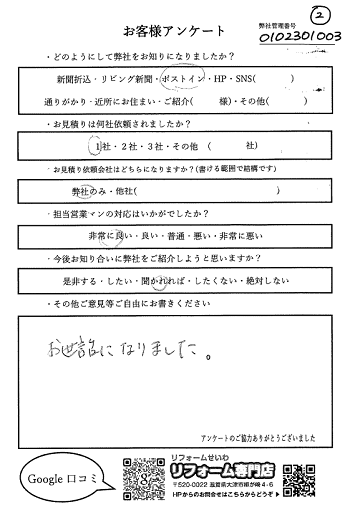 お客様アンケート
弊社管理番号
②
0102301003
・どのようにして弊社をお知りになりましたか？
新聞折込・リビング新聞・ポストイン・HP・SNS(　　　)
通りがかり・近所にお住まい・ご紹介(　　様)・その他(　　　)
・お見積りは何社依頼されましたか？
1社・2社・3社・その他　(　　　社)
・お見積り依頼会社はどちらになりますか？(書ける範囲で結構です)
弊社のみ・他社(　　　)
・担当営業マンの対応はいかがでしたか？
非常に良い・良い・普通・悪い・非常に悪い
・今後お知り合いに弊社をご紹介しようと思いますか？
是非する・したい・聞かれれば・したくない・絶対しない
・その他ご意見等ご自由にお書きください
お世話になりました。
アンケートのご協力ありがとうございました
Google 口コミ
リフォームせいわ
リフォーム専門店
〒520-0022 滋賀県大津市柳が崎4-6
HPからのお問合せはこちらからどうぞ